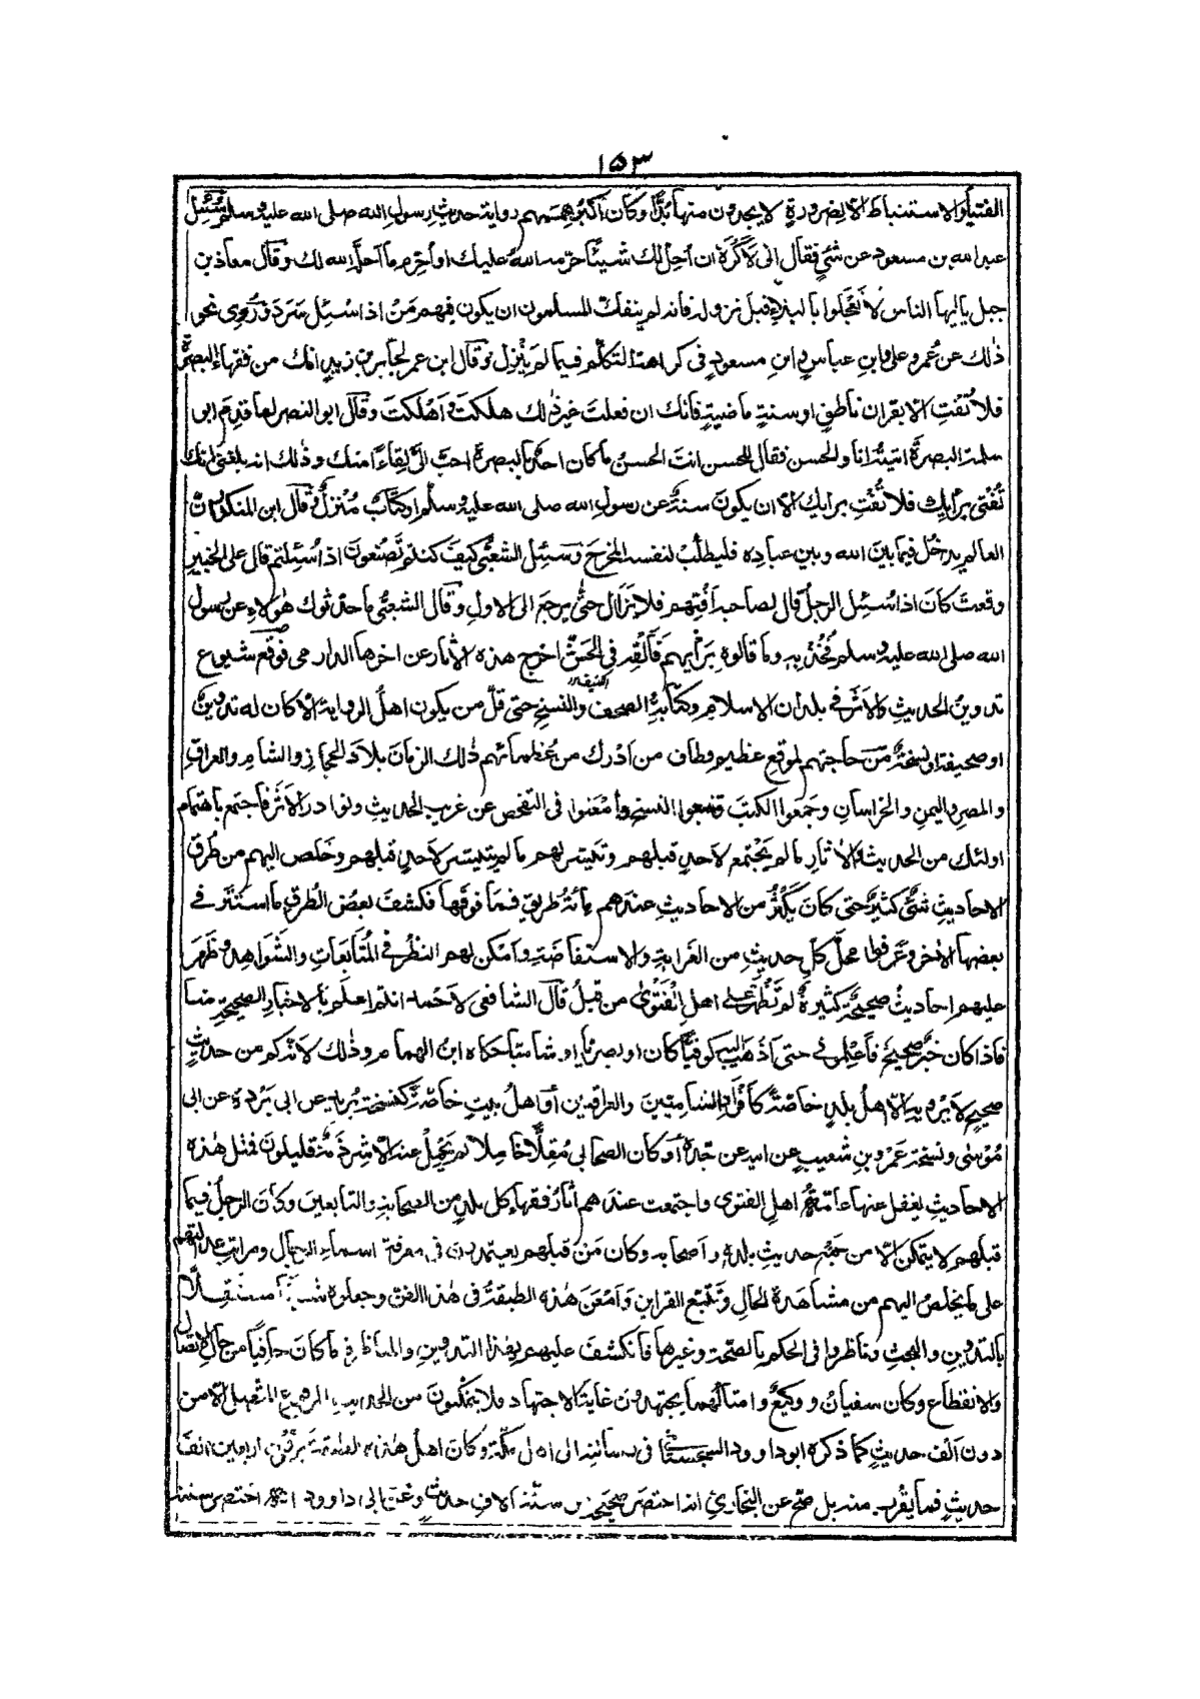 ١٥٣
الفتيا والاستنباط الا لضرورةٍ لا يجدون منها بُدًّا وكان اكبرُ هِمّتهم رواية حديثِ رسولِ الله صلى الله عليه وسلم سُئِل
عبد الله بن مسعود عن شئٍ فقال انى لاَكْرَهُ ان اُحِلَّ لك شيئًا حرّمه اللهُ عليك او اُحَرّم ما اَحلَّ الله لك وقال معاذ بن
جبل يا ايها الناس لا تَعْجَلوا بالبلاءِ قبل نزوله فانه لم ينفك المسلمون ان يكون فيهم مَنْ اذا سُئِل سَرَدَ ورُوِى نحو
ذٰلك عن عُمر وعلى وابنِ عباسٍ وابنِ مسعودٍ فى كراهة التكلّم فيما لم يَنْزِل وقال ابن عمر لجابر بن زيدٍ انك من فقهاءِ البصرة
فلا تُفْتِ الا بقرانٍ ناطقٍ او سنةٍ ماضيةٍ فانك ان فعلتَ غير ذٰلك هلكتَ واَهْلكتَ وقال ابو النصر لما قدِم ابو
سلمة البصرةَ اتيتُه انا والحسن فقال للحسن انت الحسنُ ما كان احدٌ بالبصرة احبَّ الىَّ لِقاءً منك وذٰلك انه بلغنى انك
تُفْتى برأيك فلا تُفْتِ برايك الا ان يكونَ سنةٌ عن رسولِ الله صلى الله عليه وسلم او كتابٌ مُنْزلٌ وقال ابن المنكدر انَّ
العالم يدخُل فيما بينَ الله وبين عبادِه فليطلُبْ لنفسه المخرجَ وسُئِل الشعبُّى كيفَ كنتم تَصْنعون اذا سُئِلتم قال على الخبير
وقعتَ كانَ اذا سُئِل الرجلُ قال لصاحبه اَفْتِهم فلا يزالُ حتّٰى يرجعَ الى الاولِ وقال الشعبُّى ما حدّثوك هٰؤلاءِ عن رسول
الله صلى الله عليه وسلم فخُذْ به وما قالوه بِرَأيِهم فَاَلْقِه فى الحَشِّ اخرج هذه الاٰثار عن اخرها الدارمى فوقَع شيوع
تدوينُ الحديثِ والاَثَرِ فى بلدان الاسلامِ وكتابةُ الصحف والنسخِ حتى قلّ من يكون اهلُ الرواية الا كان له تدوينٌ
او صحيفة او نسخةٌ من حاجتهم لموقع عظيمٍ وطاف من اَدْرك من عُظمائهم ذٰلك الزمانَ بلادَ الحجازِ والشامِ والعراقِ
والمصرِ واليمنِ والخراسانِ وجَمَعوا الكتبَ وتتبعوا النسخَ واَمْعَنوا فى التفحص عن غريب الحديثِ ونوادر الاَثَر فاجتمع باهتمام
اولئك من الحديثِ والاٰثارِ ما لم يَجْتمع لاَحدٍ قبلهم وتَيَسّر لهم ما لم يَتيسّر لاَحدٍ قبلهم وخَلَص اليهم من طُرقِ
الاحاديثِ شئٌ كثيرٌ حتى كانَ يَكْثُر من الاحاديثِ عندهم مِائةُ طريقٍ فما فوقَها فكشفَ بعضُ الطُرقِ ما اسْتَتَر فى
بعضها الاٰخر وعَرَفوا محلَّ كلِّ حديثٍ من الغرابةِ والاستفاضةِ واَمْكن لهم النظرُ فى المُتابَعاتِ والشَّواهدِ وظَهَر
عليهم احاديثُ صحيحةٌ كثيرةٌ لم تَظْهَر على اهلِ الفَتْوىٰ من قبلُ قال الشافعى لاَحْمد انتم اعلَم بالاخبارِ الصحيحة منا
فاذا كان خبرٌ صحيحٌ فاَعْلِمونى حتى اَذْهَب اليه كوفيًّا كان او بصريًّا او شاميًّا حكاه ابنُ الهمامِ وذٰلك لانه كم من حديثٍ
صحيحٍ لا يَرْويه الّا اهلُ بلدٍ خاصّةً كاَفْرادِ الشاميّين والعراقيّين او اهلُ بيتٍ خاصّةً كنسخةِ بُريدٍ عن ابى بُرْدة عن ابى
مُوسٰى ونسخة عَمْرو بنِ شعيبٍ عن ابيه عن جَدّه او كان الصحابىُّ مُقِلًّا خاملًا لم يَحْمِلْ عنه الّا شِرذمةٌ قليلونَ فمثل هٰذه
الاحاديثِ يغفل عنها عامّةُ اهلِ الفتوى واجتمعت عندهم اٰثارُ فقهاءِ كلِّ بلدٍ من الصحابةِ والتابعين وكان الرجلُ فيما
قبلهم لا يتمكن الّا من جَمْعِ حديثِ بلدِه واصحابِه وكان مَنْ قبلهم يعتمدون فى معرفةِ اسماءِ الرجال ومراتب عدالتهم
على ما يَخلُصُ اليهم من مشاهدةِ الحالِ وتَتَبُّع القراينِ واَمْعَنَ هٰذه الطبقةُ فى هٰذا الفنّ وجعلوه شيئًا مستقِلًّا
بالتدوينِ والبحثِ وناظروا فى الحكمِ بالصّحة وغيرها فانكشفَ عليهم بهٰذا التدوينِ والمناظرةِ ما كان خافيًا من حالِ الاتّصال
والانقطاع وكان سفيانُ ووكيعٌ وامثالُهما يجتهدون غايةَ الاجتهاد فلا يتمكّنون من الحديث المرفوع المتصل الّا من
دون اَلْف حديثٍ كما ذكره ابو داوود السجستانىُّ فى رسالته الى اهل مكّة وكان اهلُ هٰذه الطبقةِ يَرْوُون اربعين الفَ
حديثٍ فما يَقْرُب منه بل صحّ عن البخارىِّ انه اختصر صحيحَه من ستّة الاف حديثٍ وعن ابى داوود انه اختصر سننه